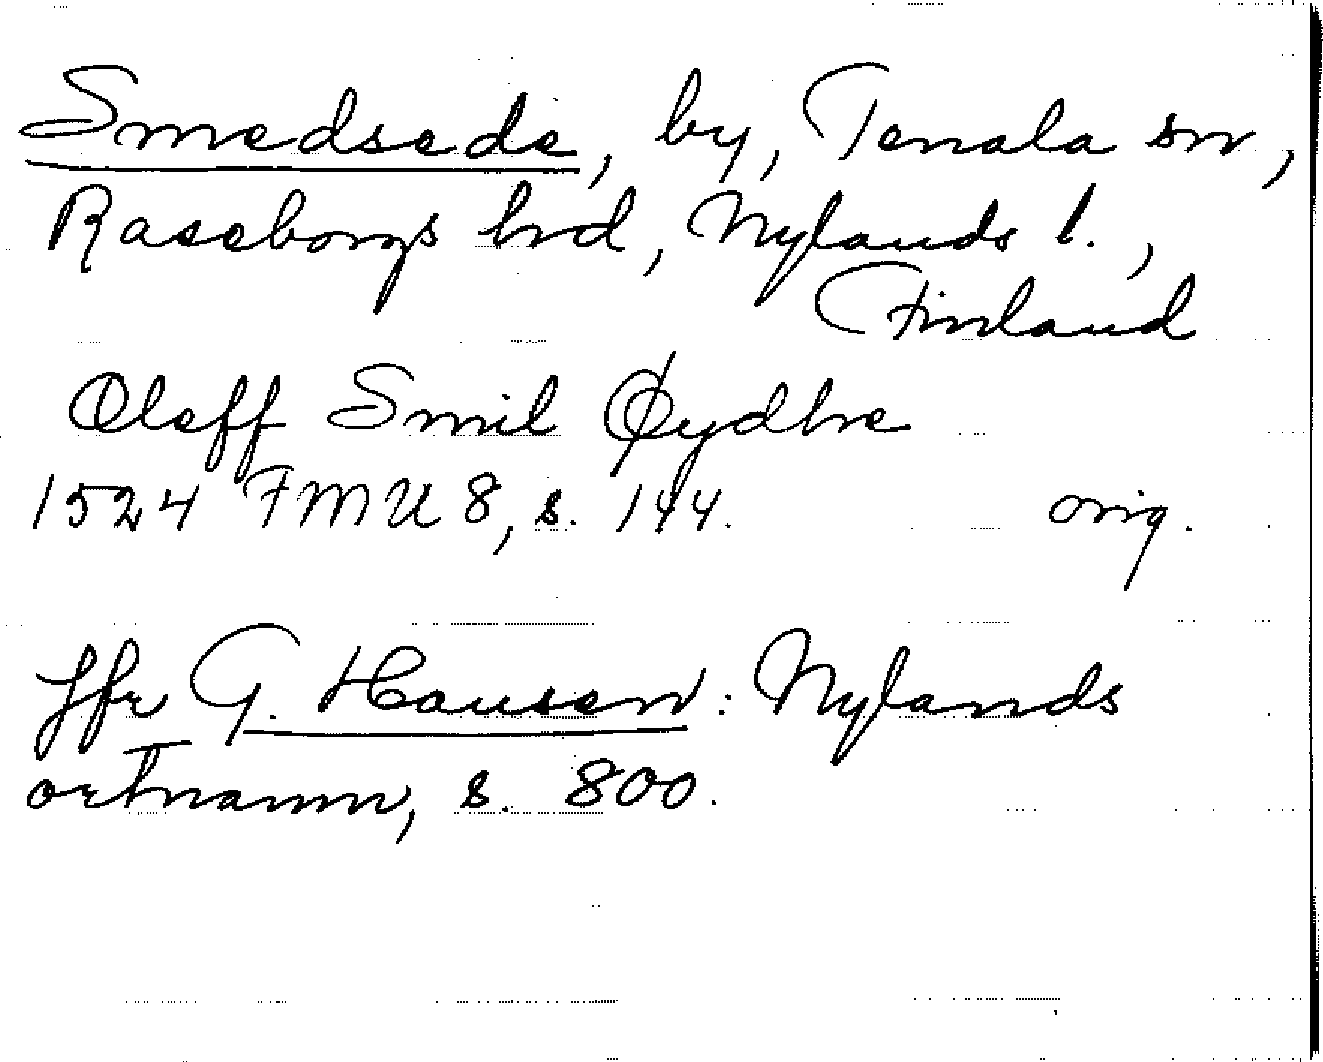 Smedsede, by, Tenala sn,
Raseborgs hrd, Nylands l.,
Finland
Oleff Smil Øydhe
1524 FMU 8, s. 144. orig.
Jfr G. Hausen: Nylands
ortnamn, s. 800.